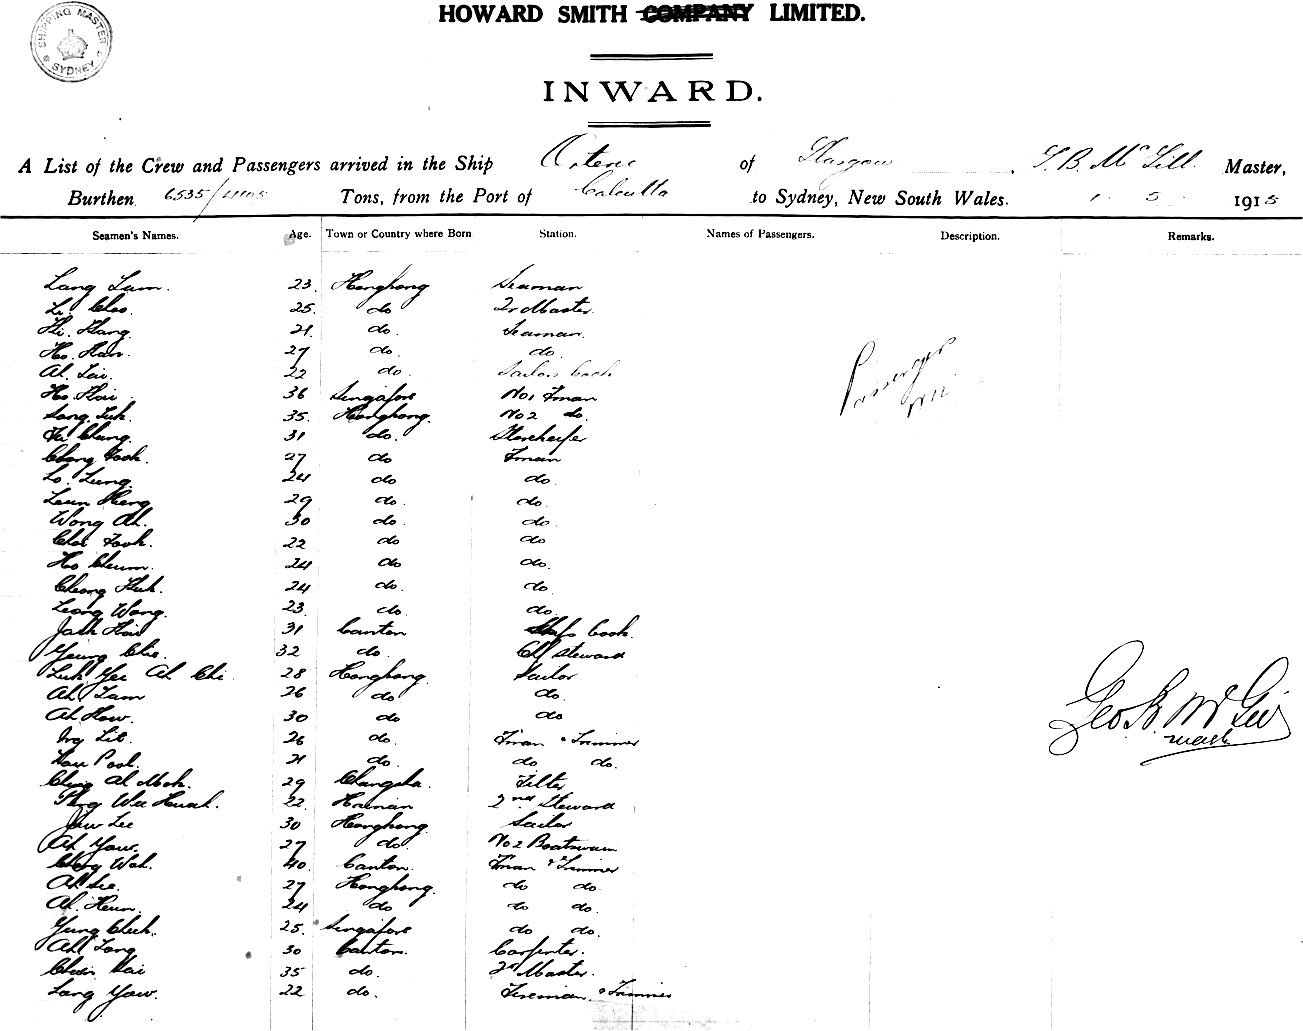 SHIPPING MASTER SYDNEY
HOWARD SMITH COMPANY LIMITED.
INWARD.
A List of the Crew and Passengers arrived in the Ship Orteric of Glasgow, G. B. McGill Master,
Burthen 6535/ Tons, from the Port of Calcutta to Sydney, New South Wales. 1 5 1915
Seamen's Names. Age. Town or Country where Born. Station. Names of Passengers. Description. Remarks.
Lang Lum. 23. Hongkong Seaman
Li Choo. 25. do
Hi. Hang. 21. do. Seaman.
Ho. Han. 27 do. do.
Ah. Lai. 22 do. Sailors Cook
Ho Hoi 36 Singapore No1 Fman
35. Hongkong. No2 do.
31 do. Storekeeper
Chong Fook. 27 do Fman
Lo. Lung. 24 do do.
29 do. do.
Wong Ah. 30 do. do.
Choi Fook. 22 do do
Ho Cheum. 24 do do.
Cheong 24 do. do.
Leong Wong. 23. do. do.
31 Canton Cook.
32 do. Ch Steward
Ah Chi. 28 Hongkong. Sailor
Ah Lam 26 do do.
Ah How. 30 do do
Ng Lit. 26 do. Fman & Trimmer
21 do. do do.
Ah Mok. 29 Changsha. Fitter
22. Hainan 2nd Steward
Jew Lee 30 Hongkong Sailor
Ah Yow. 27 do. No2 Boatswain
Wah. 40. Canton. Fman & Trimmer
Ah Lee. 27 Hongkong. do do.
Ah. Heun. 24 do do do.
Yung 25. Singapore do do.
Ah Long 30 Canton. Carpenter.
35 do.
Lang Yow. 22 do. Fireman & Trimmer
Passengers
Nil.
Geo. B. McGill
Master